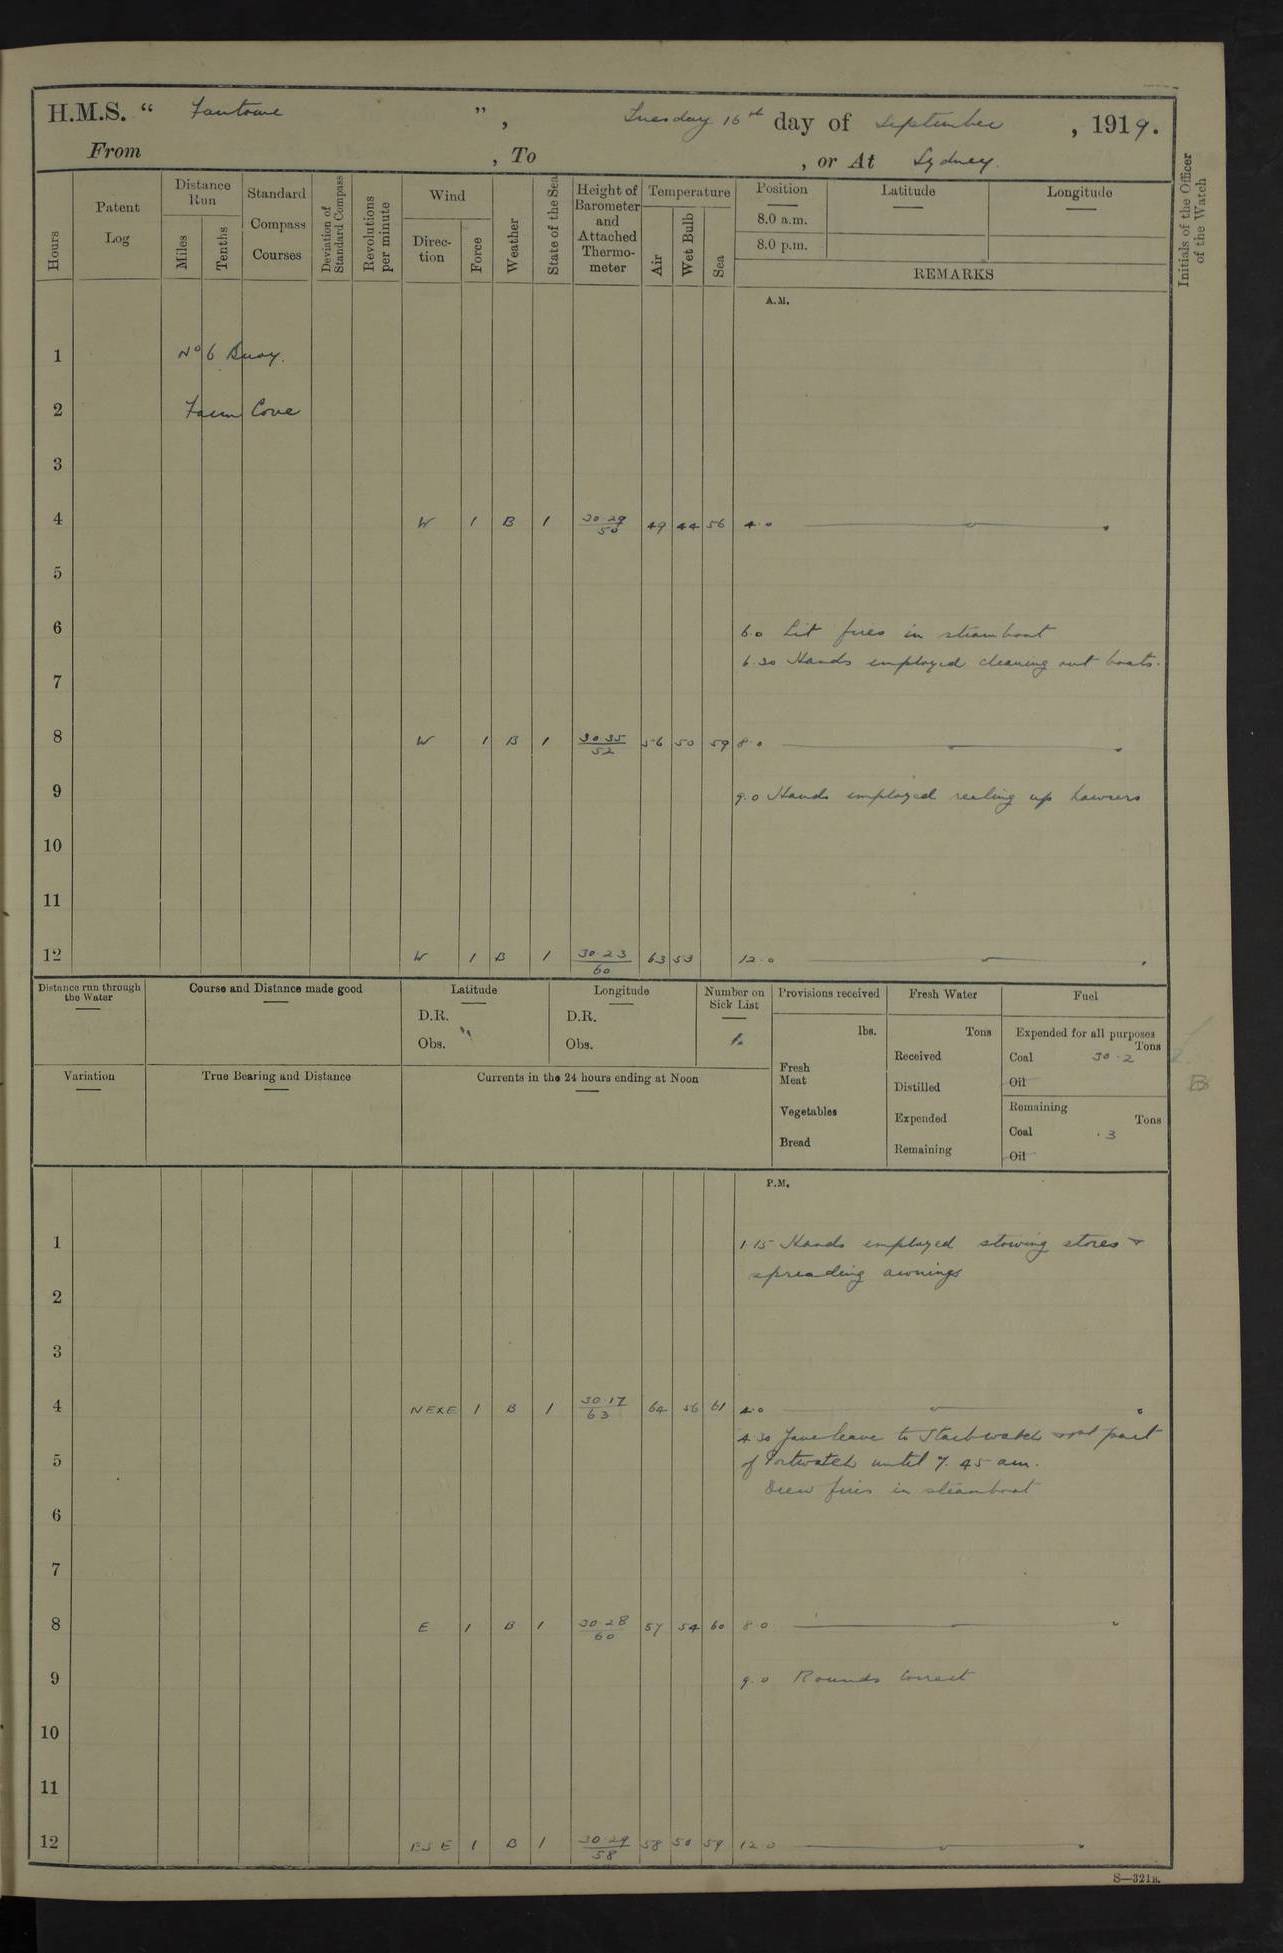 H.M.S. " Fantome ", Tuesday 16th day of September, 1919.
From , To , or At Sydney.
Initials of the Officer of the Watch
Hours
Patent Log
Distance Run
Miles
Tenths
Standard Compass Courses
Deviation of Standard Compass
Revolutions per minute
Wind
Direction
Force
Weather
State of the Sea
Height of Barometer and Attached Thermometer
Temperature
Air
Wet Bulb
Sea
Position Latitude Longitude
8.0 a.m.
8.0 p.m.
REMARKS
A.M.
1 No 6 Buoy.
2 Farm Cove
3
4 W 1 B 1 30.29/50 49 44 56 4.0
5
6 6.0 Lit fires in steamboat
6.30 Hands employed cleaning out boats.
7
8 W 1 B 1 30.35/52 56 50 59 8.0
9 9.0 Hands employed reeling up hawsers
10
11
12 W 1 B 1 30.23/60 63 53 12.0
Distance run through the Water
Course and Distance made good
Latitude
D.R.
Obs.
Longitude
D.R.
Obs.
Number on Sick List
Provisions received
lbs.
Fresh Meat
Vegetables
Bread
Fresh Water
Tons
Received
Distilled
Expended
Remaining
Fuel
Expended for all purposes
Tons
Coal 30.2
Oil
Remaining
Tons
Coal .3
Oil
B
Variation
True Bearing and Distance
Currents in the 24 hours ending at Noon
P.M.
1 1.15 Hands employed stowing stores &
spreading awnings
2
3
4 NExE 1 B 1 30.17/63 64 56 61 4.0
4.30 Gave leave to Starbwatch & 1st part
5 of Portwatch until 7.45 am.
Drew fires in steamboat
6
7
8 E 1 B 1 30.28/60 57 54 60 8.0
9 9.0 Rounds Correct
10
11
12 ESE 1 B 1 30.29/58 58 50 59 12.0
S—321B.